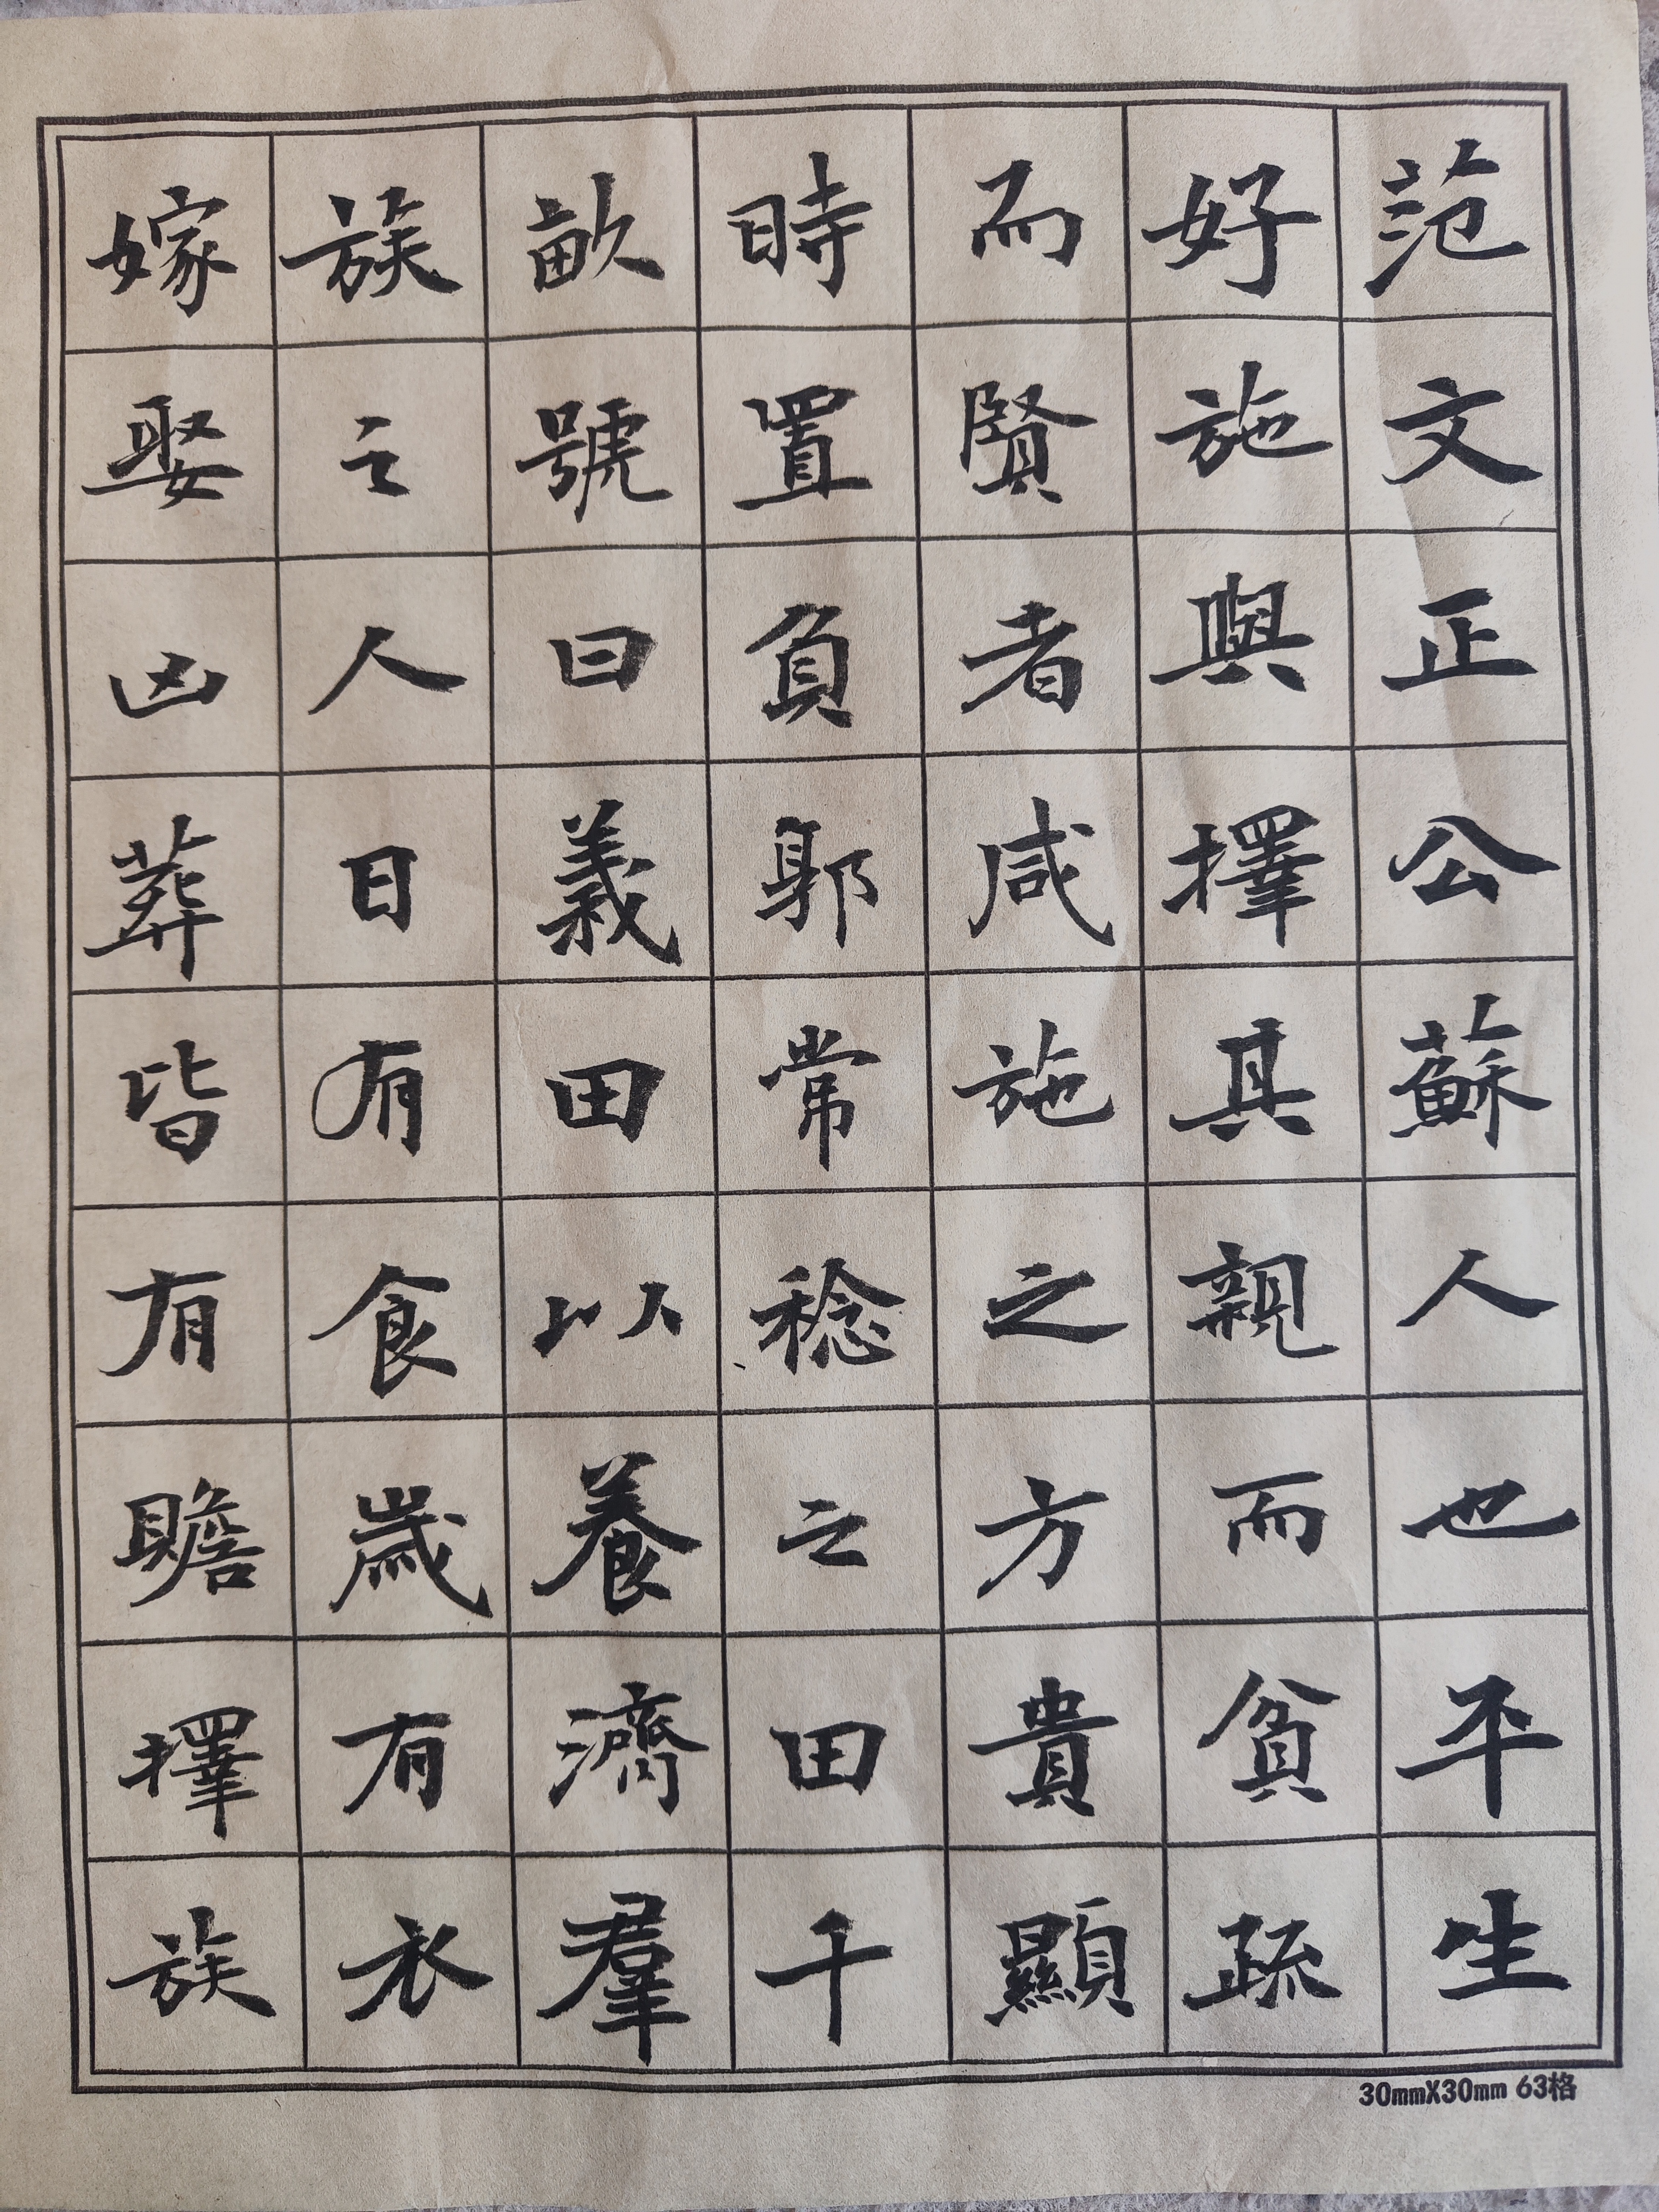 范文正公蘇人也平生
好施與擇其親而貧疏
而賢者咸施之方貴顯
時置負郭常稔之田千
畝號曰義田以養濟羣
族之人日有食歲有衣
嫁娶凶葬皆有贍擇族
30mmX30mm 63格